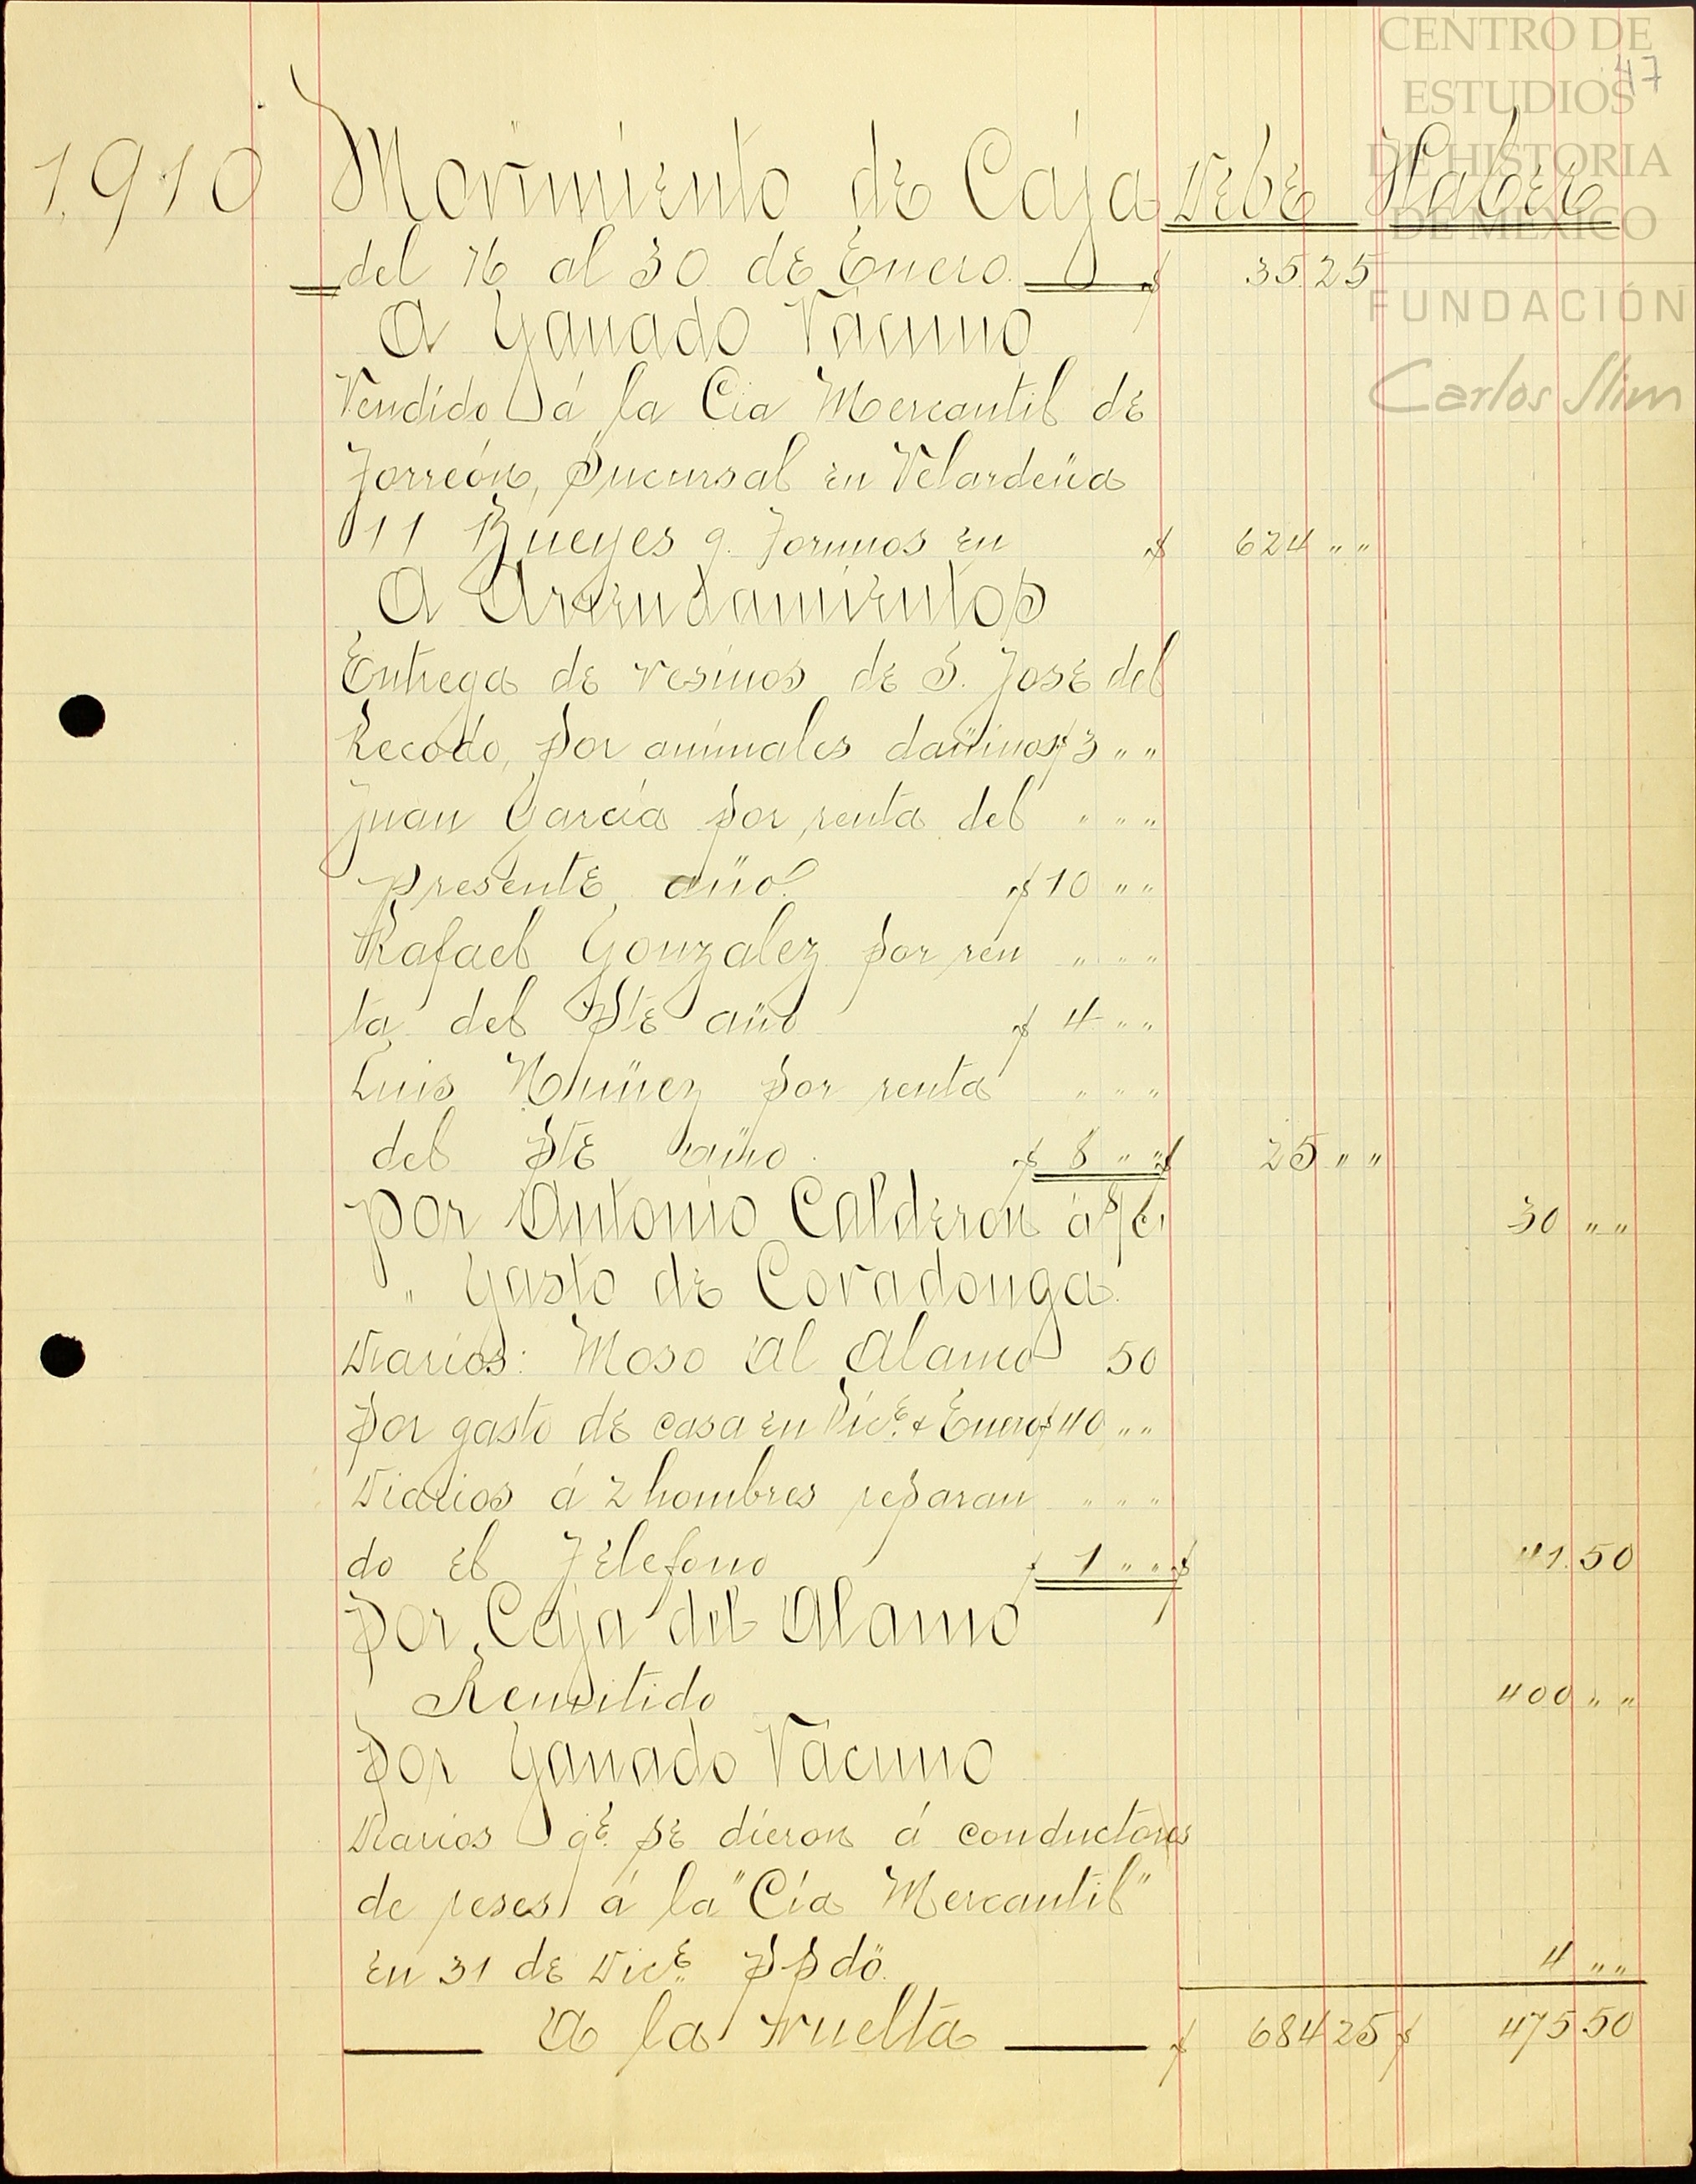 CENTRO DE
ESTUDIOS
DE HISTORIA
DE MÉXICO
FUNDACIÓN
Carlos Slim
47
1910 Movimiento de Caja Debe Haber
del 16 al 30 de Enero. $ 35.25
A Ganado Vacuno
Vendido á la Cía Mercantil de
Torreón, Sucursal en Velardeña
11 Bueyes y. Torunos en $ 624 " "
A Arrendamientos
Entrega de vesinos de S. José del
Recodo, por animales dañinos $ 3 " "
Juan García por renta del " " "
presente año. $ 10 " "
Rafael Gonzalez por ren " " "
ta del pte año $ 4 " "
Luis Nuñez por renta " " "
del pte año. $ 8 " " $ 25 " "
por Antonio Calderon á $/c. 30 " "
" Gasto de Covadonga.
Diarios: Moso al Alamo 50
por gasto de casa en Dice. & Enero $ 40 " "
Diarios á 2 hombres reparan " " "
do el Télefono $ 1 " " $ 41.50
por Caja del Alamo
Remitido 400 " "
por Ganado Vacuno
Diarios qe. se dieron á conductores
de reses á la "Cía Mercantil"
en 31 de Dice. ppdo. 4 " "
A la vuelta $ 684 25 $ 475 50